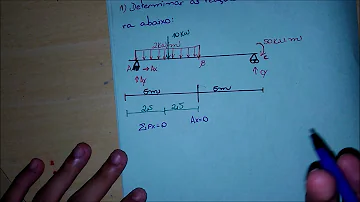 1) Determinar as
ra abaixo:
10KW
2KW/m
50KW m
A → Ax B C
↑Ay ↑Cy
5m 5m
2,5 2,5
ΣFx=0 Ax=0